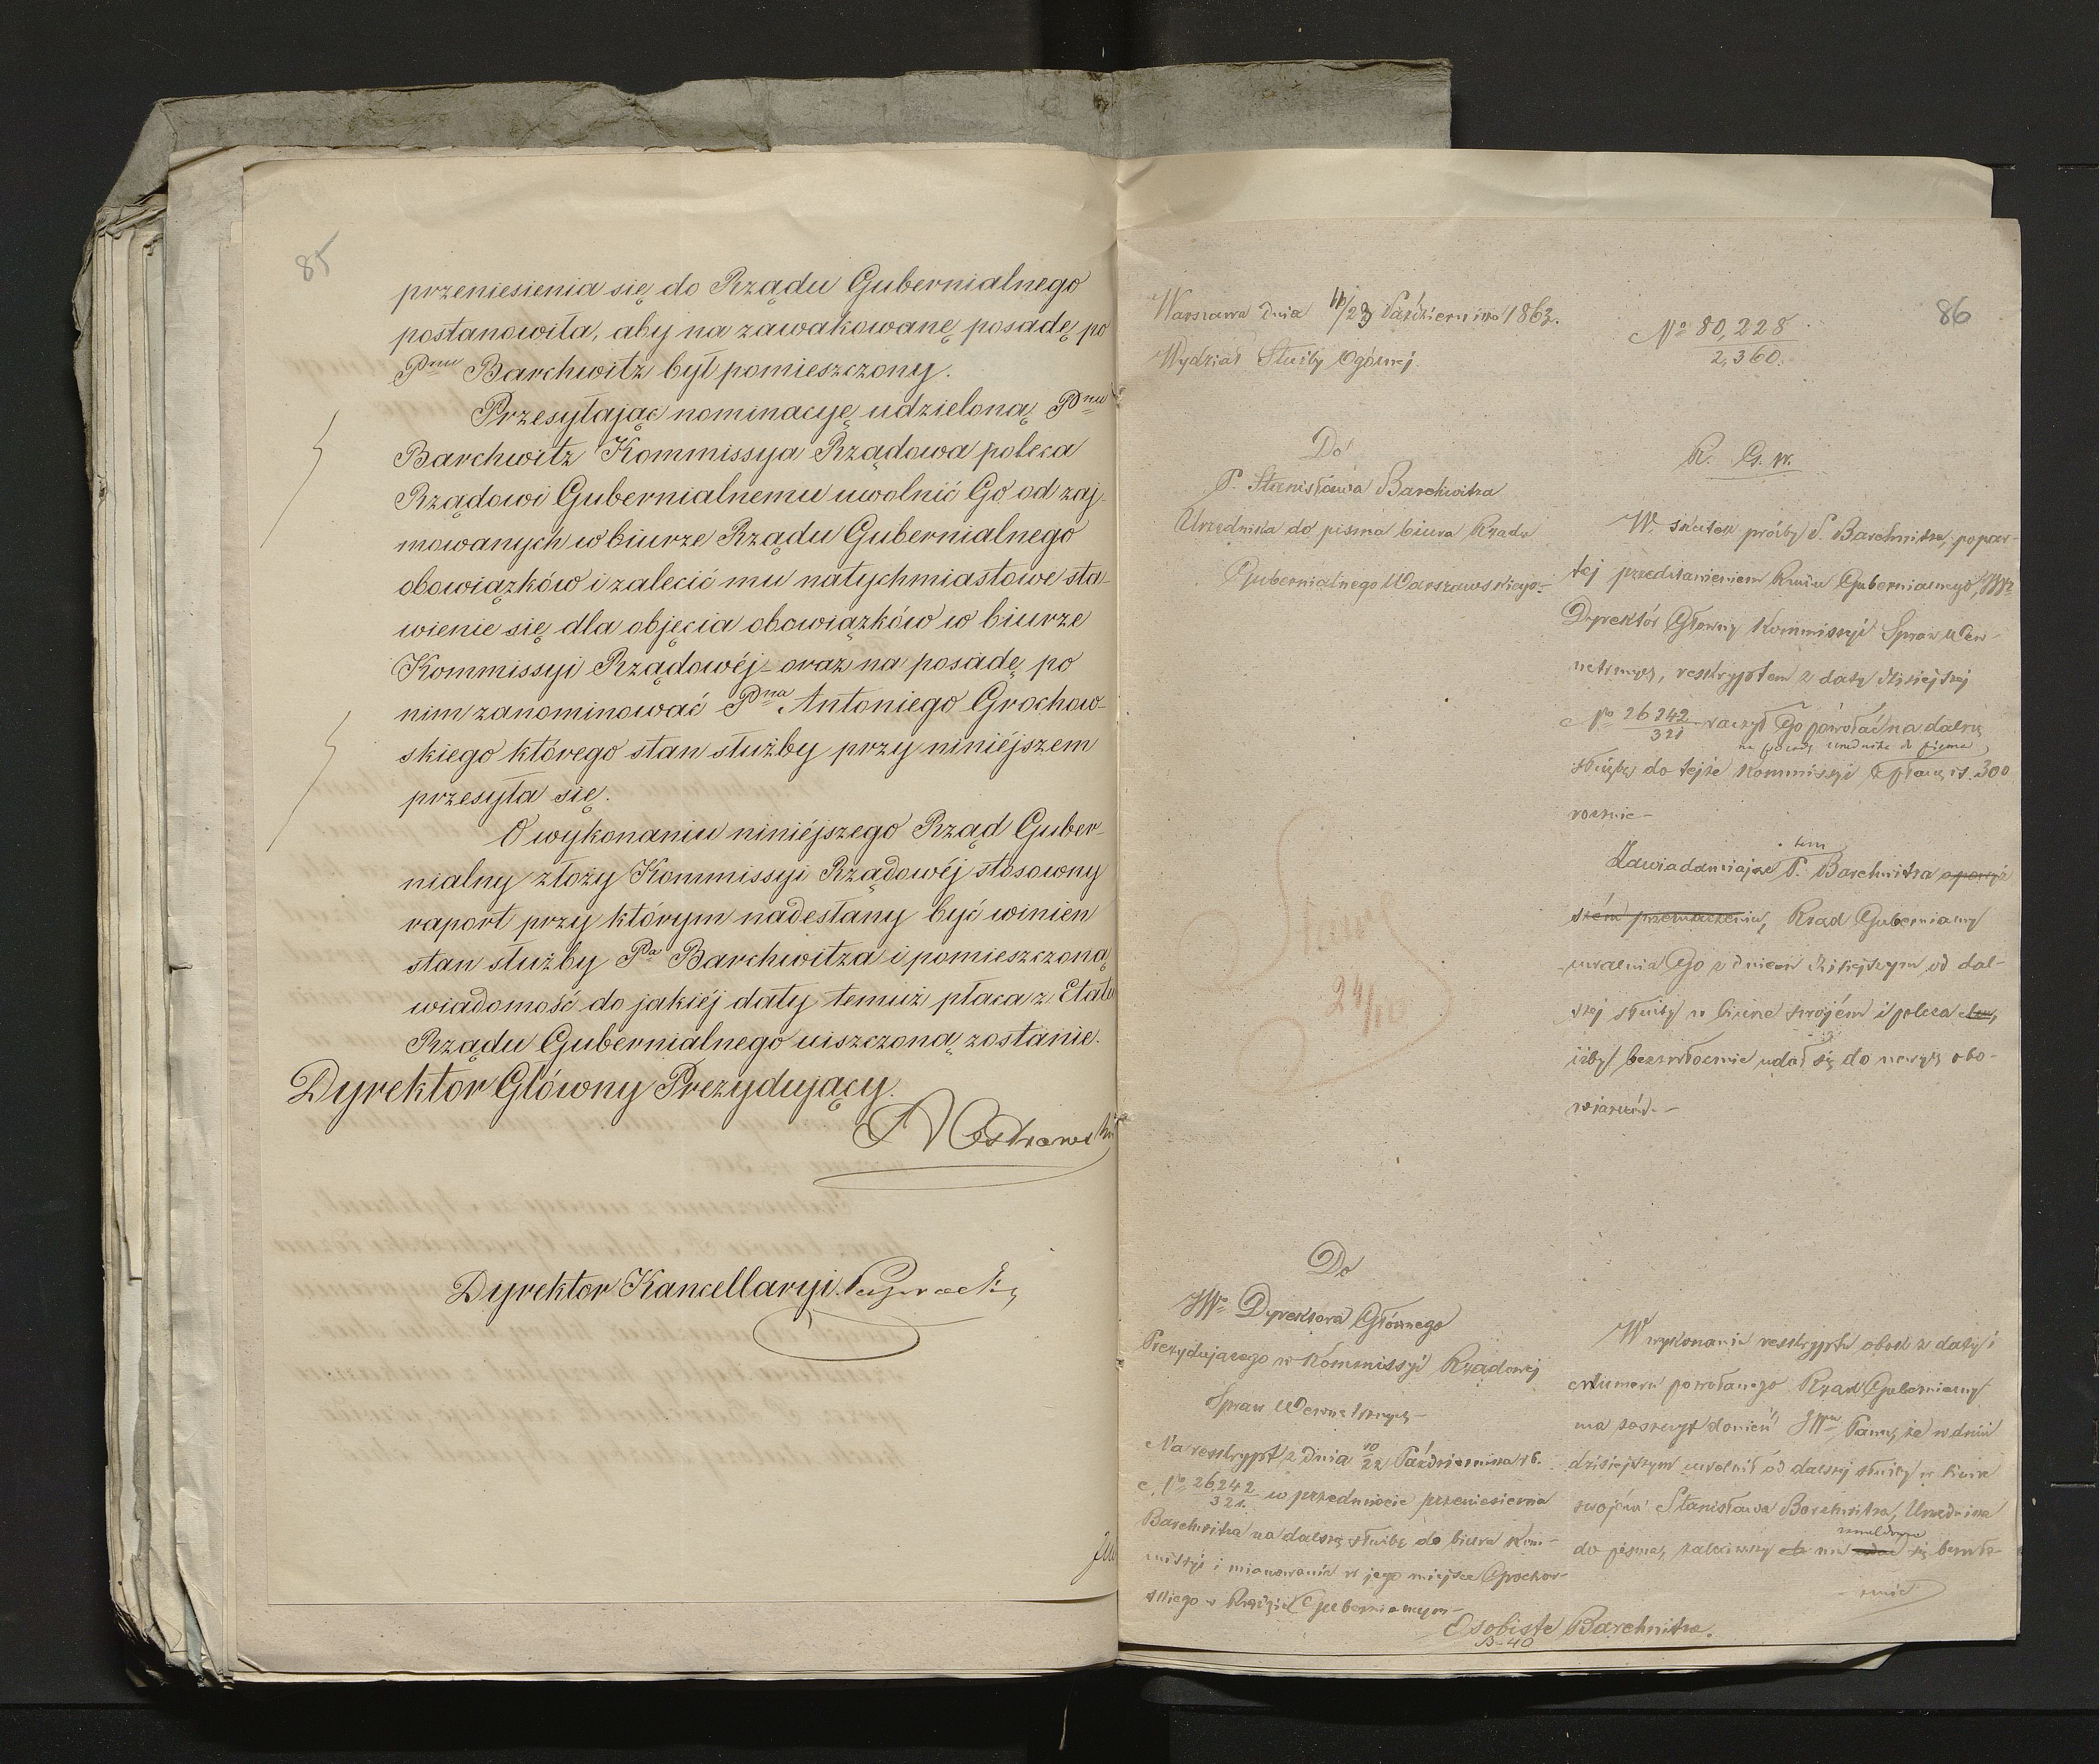 85
przeniesienia się do Rządu Gubernialnego
postanowiła, aby na zawakowanę posadę po
Pnu Barchwitz był pomieszczony.
Przesyłając nominacyę udzieloną Pnu
Barchwitz Kommissya Rządowa poleca
Rządowi Gubernialnemu uwolnić Go od zaj-
mowanych w biurze Rządu Gubernialnego
obowiązków i zalecić mu natychmiastowe sta-
wienie się dla objęcia obowiązków w biurze
Kommissyi Rządowéj - oraz na posadę po
nim zanominować Pna Antoniego Grochow-
skiego którego stan służby przy niniéjszem
przesyła się.
O wykonaniu niniéjszego Rząd Guber-
nialny złoży Kommissyi Rządowéj stosowny
raport przy którym nadesłany być winien
stan służby Pa Barchwitza i pomieszczoną
wiadomość do jakiéj daty temuż płaca z Etatu
Rządu Gubernialnego uiszczoną zostanie.
Dyrektor Główny Prezydujący.
Ostrowski
Dyrektor Kancellaryi
86
Warszawa dnia 11/23 Października 1863.
Wydział Służby Ogólnej
No 80,228
2,360.
Do
P. Stanisława Barchwitza
Urzędnika do pisma biura Rządu
Gubernialnego Warszawskiego-
R. G. W.
W skutek prośby P. Barchwitza, popar-
tej przedstawieniem Rządu Gubernialnego, JW
Dyrektór Główny Kommissyi Spraw Wew-
netrznych, resskryptem z daty dzisiejszej
No 26242/321 raczył Go powołać na dalszą
na posadę urzednika do pisma
służbę do tejże Kommissyi z płacą rs. 300
rocznie -
tem
Zawiadamiając o P. Barchwitza
Rząd Gubernialny
uwalnia Go z dniem dzisiejszym od dal-
szej służby w biurze swojém i poleca
iżby bezzwłocznie udał się do nowych obo-
wiązków. -
24/10
Do
JWo Dyrektora Głównego
Prezydującego w Kommissyi Rządowej
Spraw Wewnetrznych -
Na resskrypt z dnia 10/22 Października rb.
No 26,242/321 w przedmiocie przeniesienia
Barchwitza na dalszą służbę do biura Kom-
missyi i mianowania w jego miejsce Grochow-
skiego w Rządzie Gubernialnym -
W wykonaniu resskryptu obok z daty i
Numeru powołanego Rząd Gubernialny
ma zaszczyt donieść JWmu Panu, że w dniu
dzisiejszym uwolnił od dalszej służby w biurze
swojém Stanisława Barchwitza, Urzędnika
do pisma, zaleciwszy mu się bezzwło-
cznie
Osobiste Barchwitza.
B-40